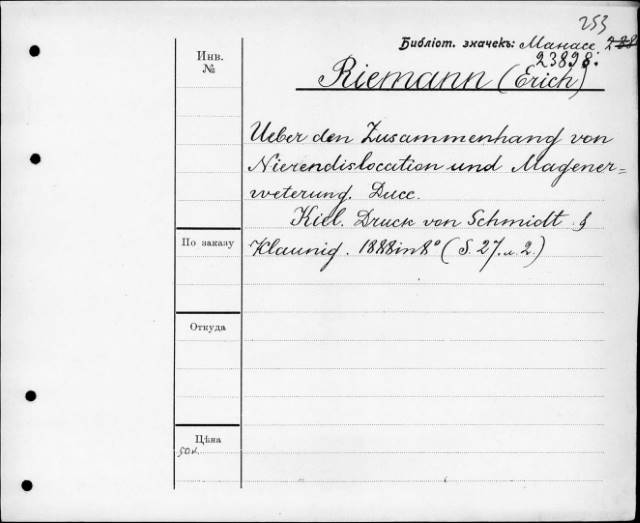 253
Библіот. значекъ: Манасс. 288
23898.
Инв.
№
Riemann (Erich)
Ueber den Zusammenhang von
Nierendislocation und Magener=
weterung. Дисс.
Kiel. Druck von Schmidt &
Klaunig. 1888 in 8° (S. 27. u. 2.)
По заказу
Откуда
Цѣна
50 к.